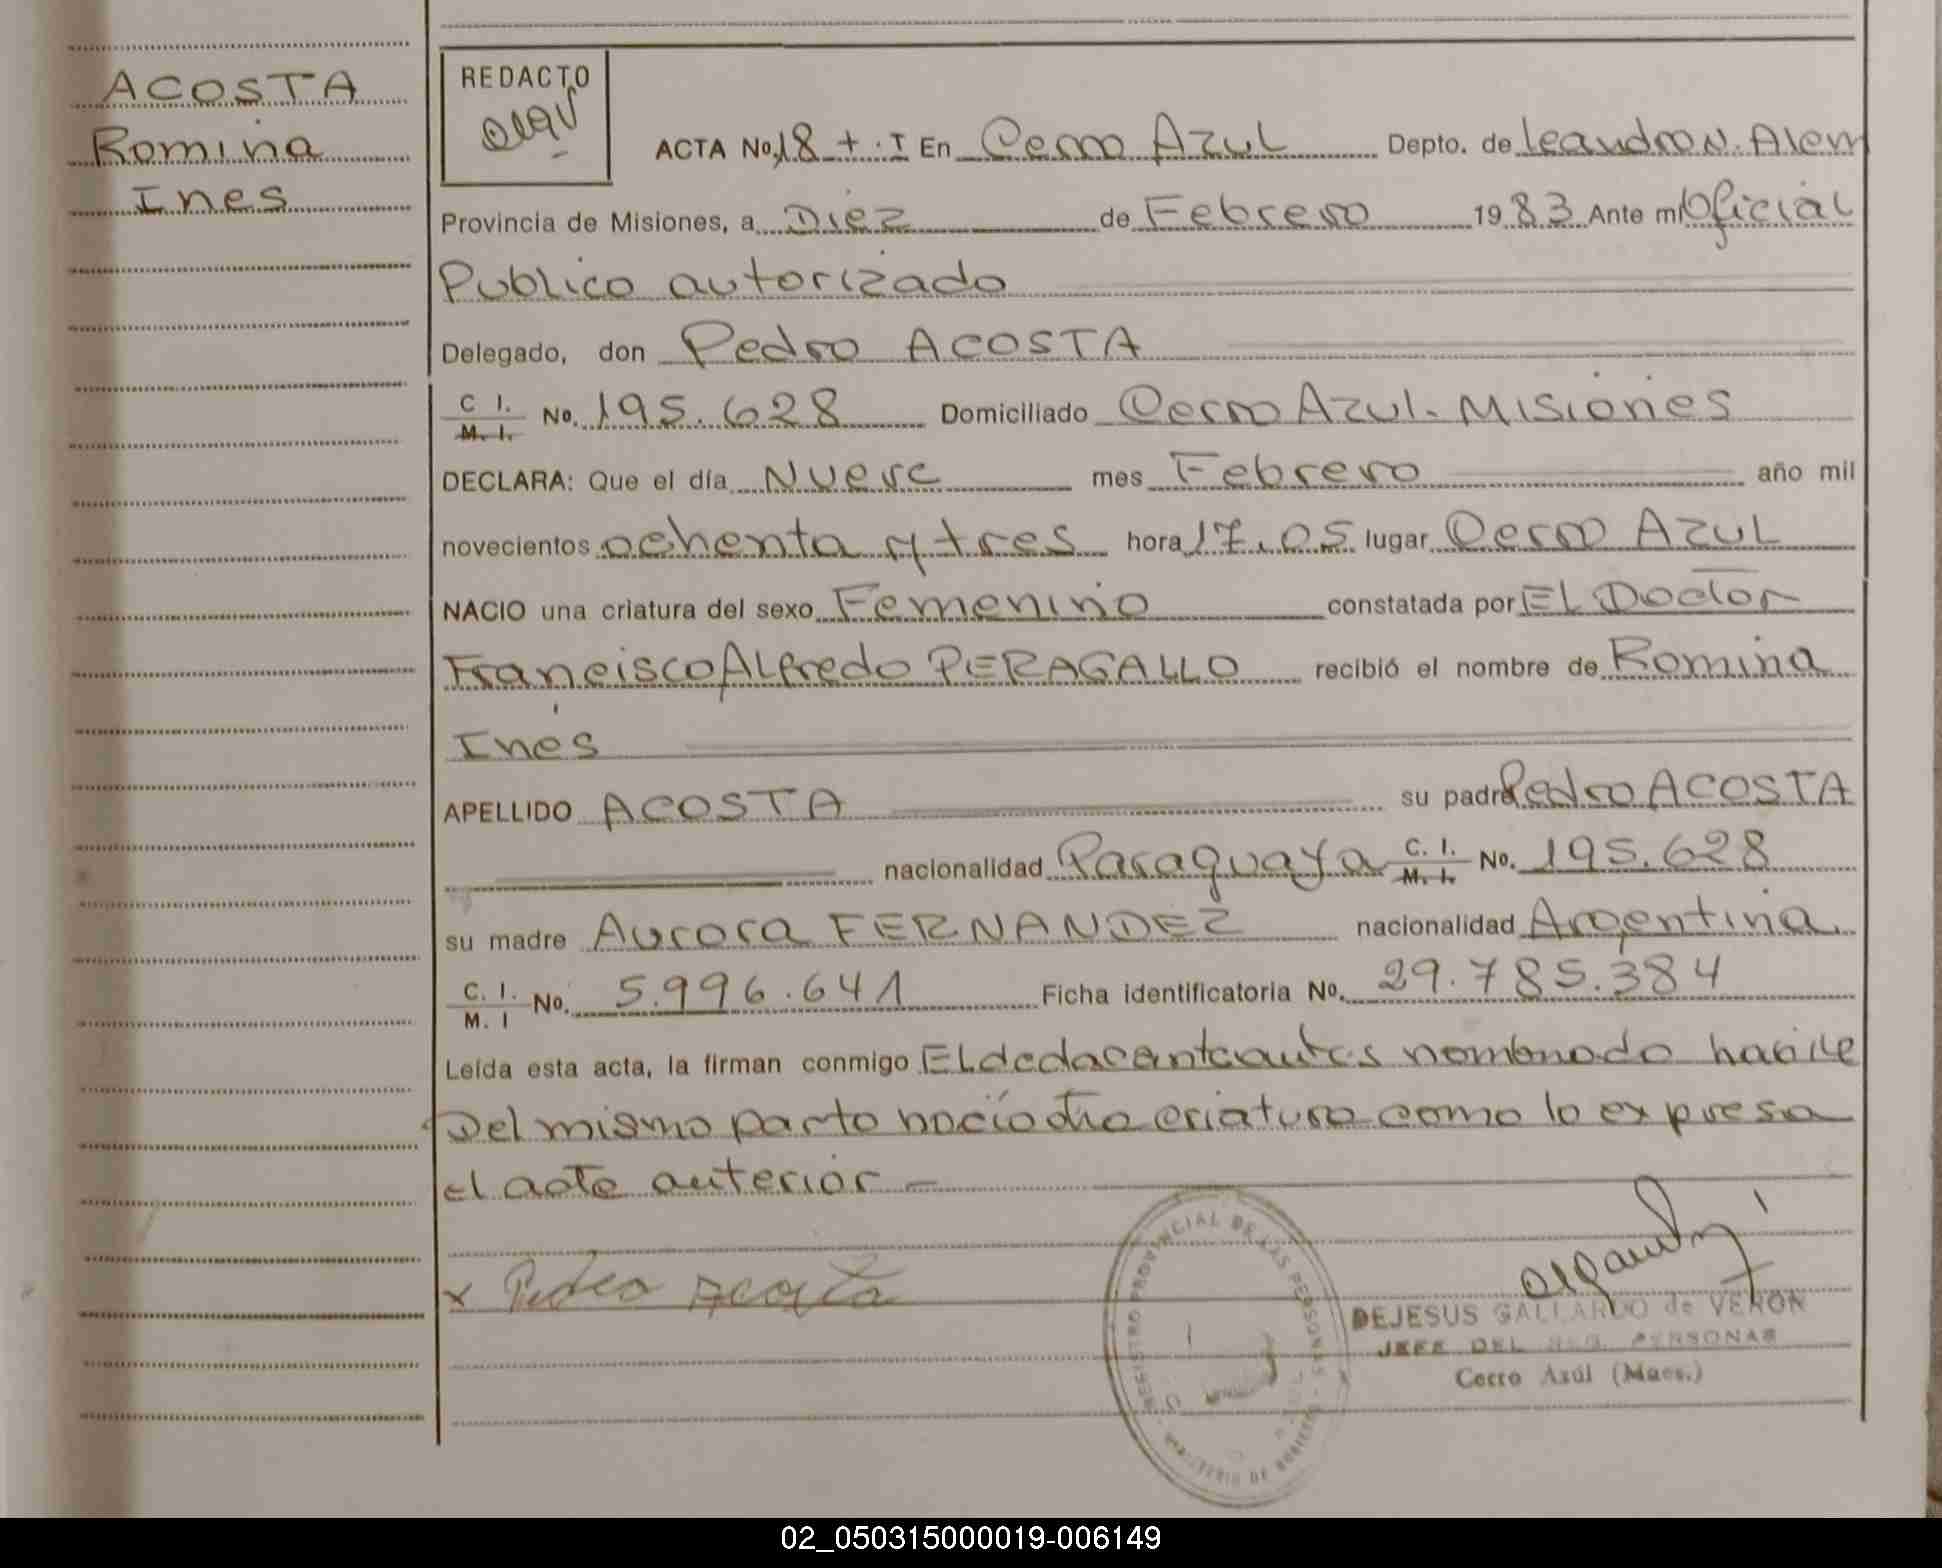 ACOSTA
Romina
Ines
REDACTO
ACTA No. 18 + . I En Cerro Azul Depto. de Leandro N. Alem
Provincia de Misiones, a Diez de Febrero 1983 Ante mi Oficial
Publico autorizado
Delegado, don Pedro ACOSTA
C I. / M. I. No. 195.628 Domiciliado Cerro Azul. Misiones
DECLARA: Que el día Nueve mes Febrero año mil
novecientos ochenta y tres hora 17.05 lugar Cerro Azul
NACIO una criatura del sexo Femenino constatada por El Doctor
Francisco Alfredo PERAGALLO recibió el nombre de Romina
Inés
APELLIDO ACOSTA su padre Pedro ACOSTA
nacionalidad Paraguaya C. I. / M. I. No. 195.628
su madre Aurora FERNANDEZ nacionalidad Argentina
C. I. / M. I No. 5.996.641 Ficha identificatoria No. 29.785.384
Leída esta acta, la firman conmigo El nombrado
Del mismo parto nació otra criatura como lo expresa
el acta anterior -
x Pedro Acosta
REGISTRO PROVINCIAL DE LAS PERSONAS
MINISTERIO DE GOBIERNO
DEJESUS GALLARDO de VERON
JEFE DEL REG. PERSONAS
Cerro Azúl (Mnes.)
02_050315000019-006149